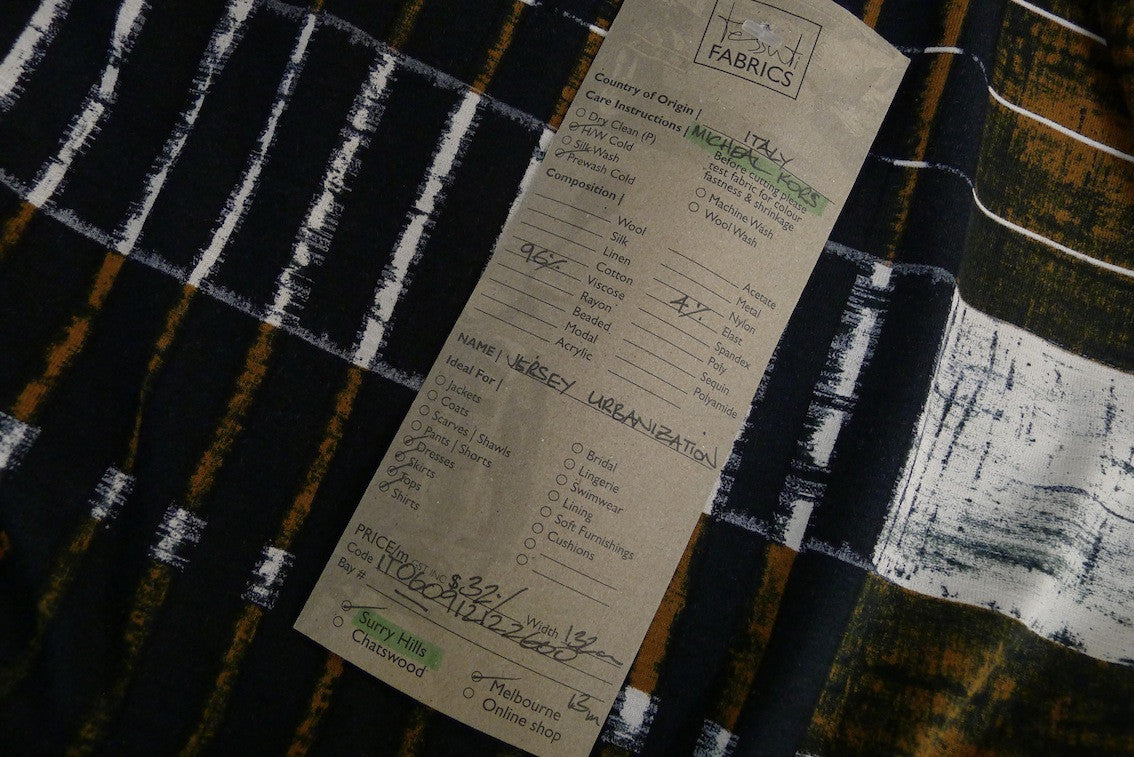 Tessuti
FABRICS
Country of Origin | ITALY
Care Instructions | MICHEAL KORS
Dry Clean (P)
H/W Cold
Silk Wash
Prewash Cold
Before cutting please
test fabric for colour
fastness & shrinkage
Machine Wash
Wool Wash
Composition |
Wool
Silk
Linen
Cotton
96% Viscose
Rayon
Beaded
Modal
Acrylic
Acetate
Metal
Nylon
4% Elast
Spandex
Poly
Sequin
Polyamide
NAME | JERSEY URBANIZATION
Ideal For |
Jackets
Coats
Scarves | Shawls
Pants | Shorts
Dresses
Skirts
Tops
Shirts
Bridal
Lingerie
Swimwear
Lining
Soft Furnishings
Cushions
PRICE/m GST INC $32./
Width 132cm
Code IT060912122600
Bay #
Surry Hills
Chatswood
Melbourne 13m
Online shop